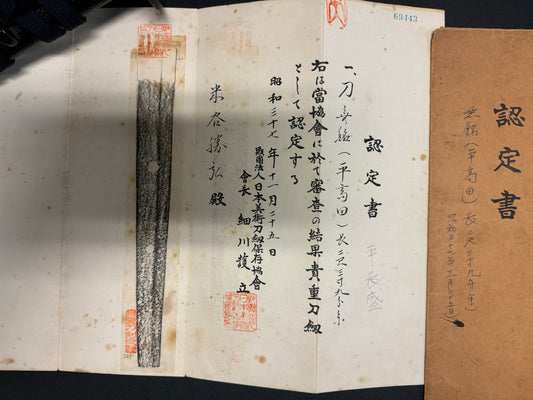 69443
認定書
一、刀 無銘(平高田)長二尺三寸九分余
平長盛
右は當協會に於て審査の結果貴重刀剱
として認定する
昭和三十七年十一月二十五日
財團法人日本美術刀剱保存協會
會長 細川護立
米谷勝弘殿
認定書
無銘(平高田)長二尺三寸九分(半)
昭和三十七年十一月二十五日